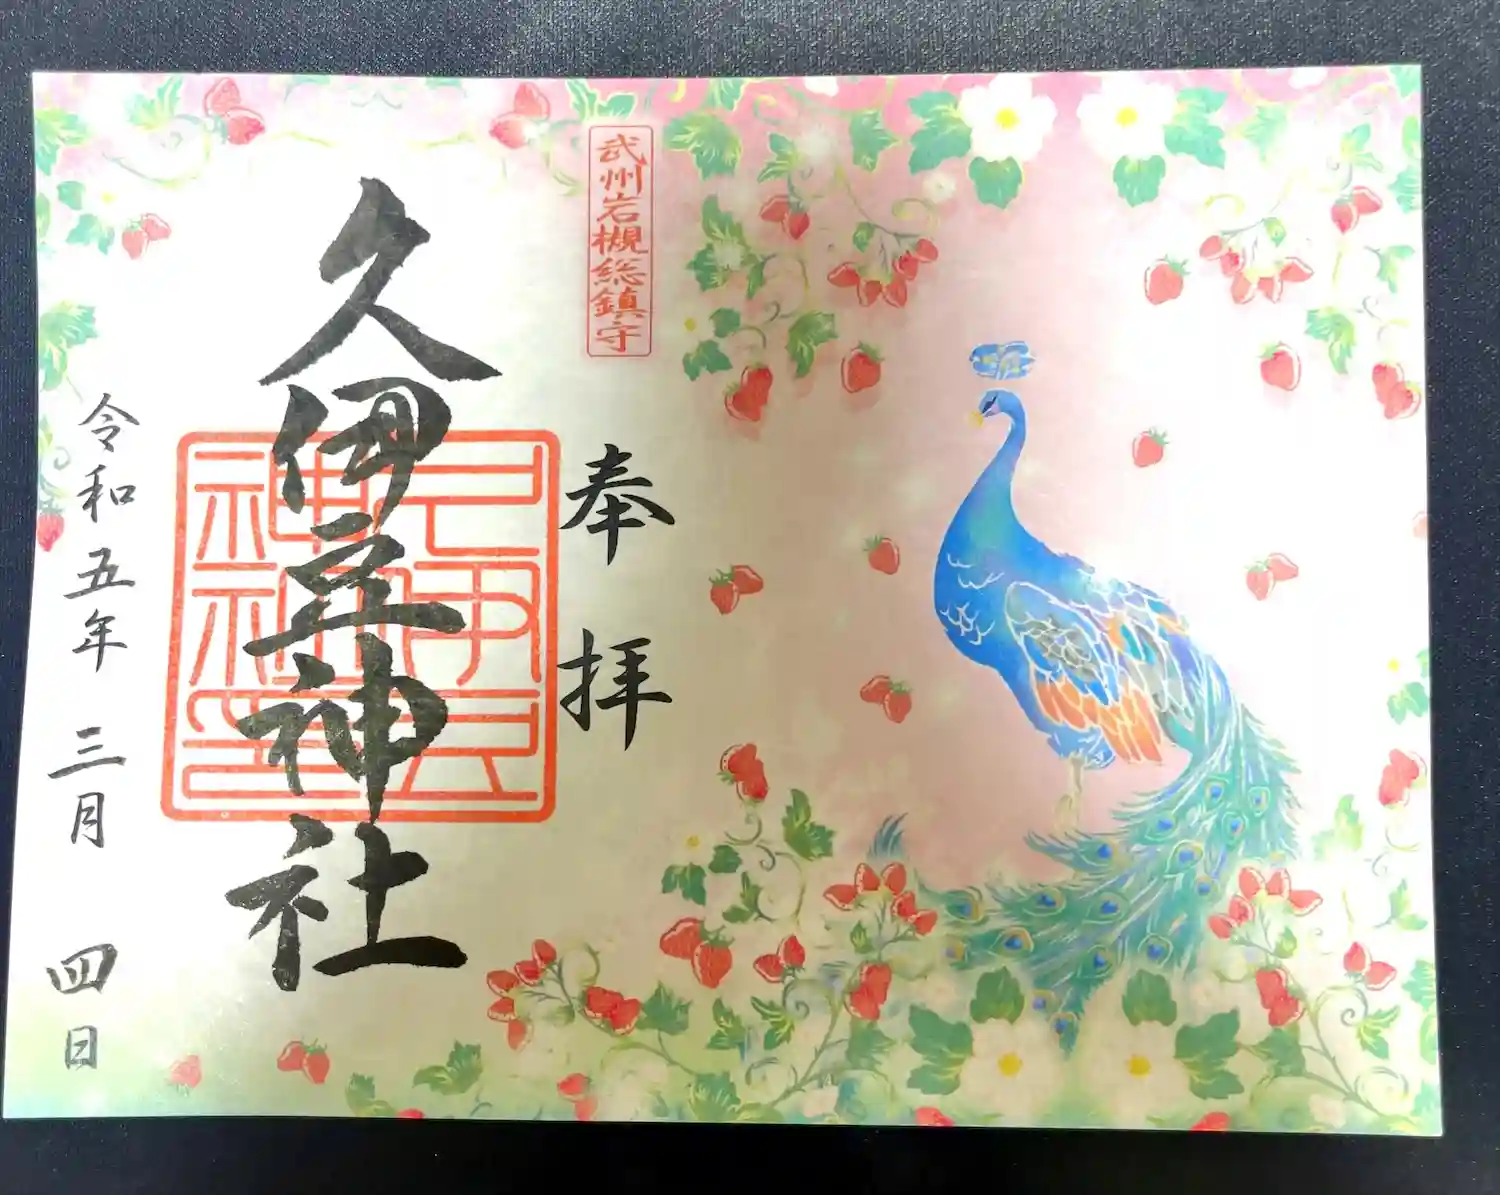 武州岩槻総鎮守
奉拝
久伊豆神社
令和五年三月四日